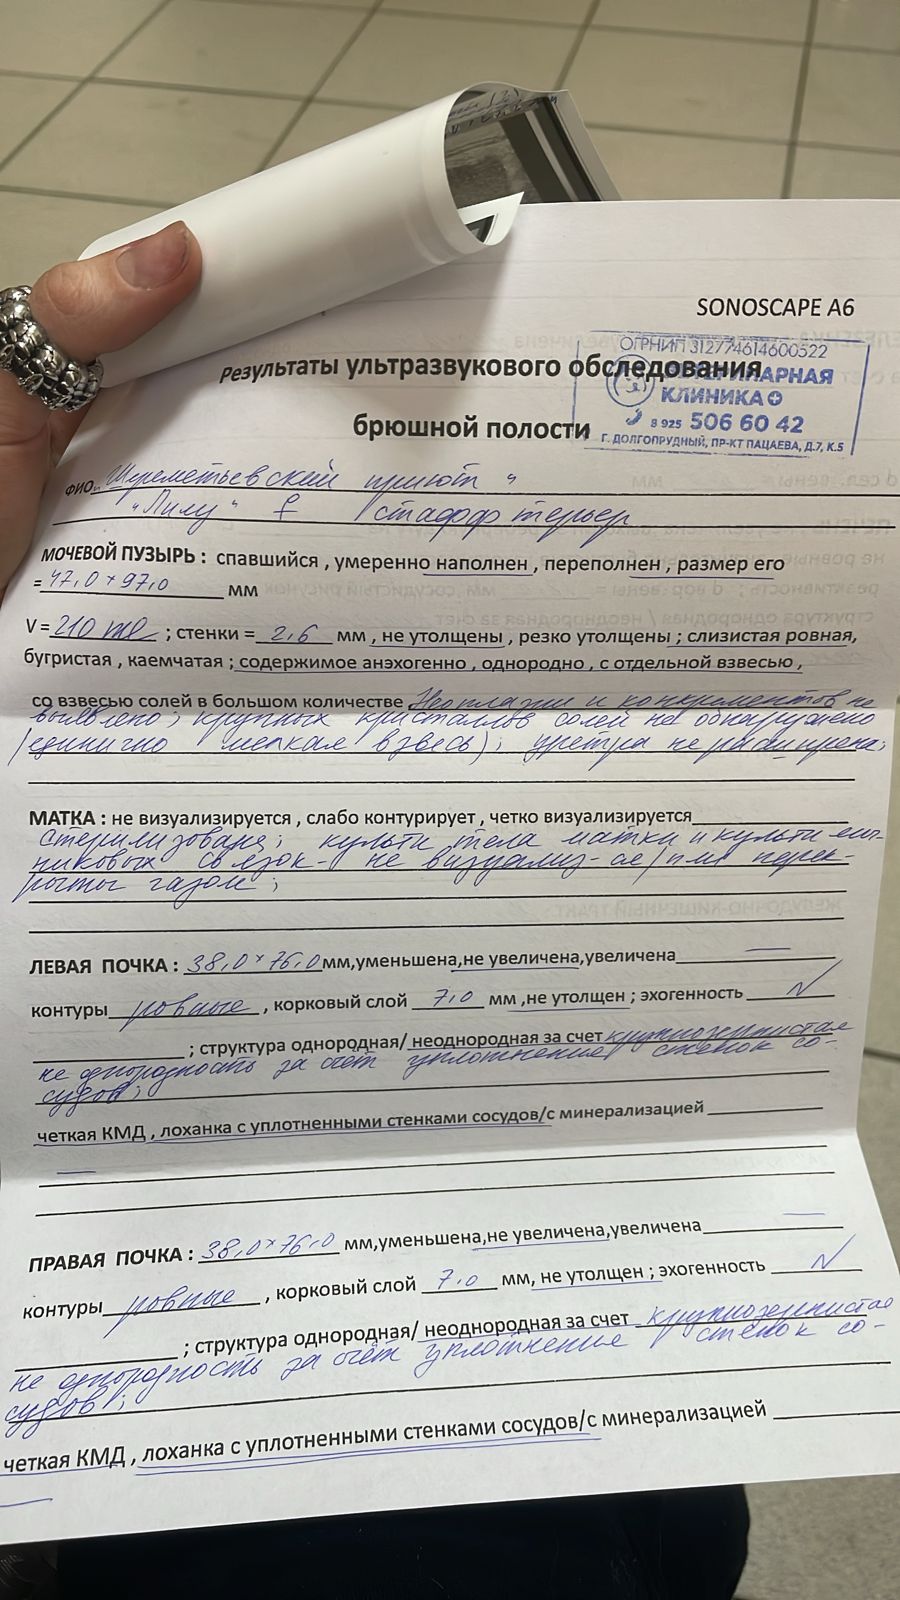 SONOSCAPE A6
ОГРНИП 312774614600522
Результаты ультразвукового обследования
ВЕТЕРИНАРНАЯ
КЛИНИКА
брюшной полости
8 925 506 60 42
Г. ДОЛГОПРУДНЫЙ, ПР-КТ ПАЦАЕВА, Д.7, К.5
ФИО. Шереметьевский приют "
"Лилу" ♀ стафф терьер
МОЧЕВОЙ ПУЗЫРЬ : спавшийся , умеренно наполнен , переполнен , размер его
= 47,0 × 97,0 мм
V = 210 ml ; стенки = 2,6 мм , не утолщены , резко утолщены ; слизистая ровная,
бугристая , каемчатая ; содержимое анэхогенно , однородно , с отдельной взвесью ,
со взвесью солей в большом количестве Неоплазии и конкрементов не
выявлено; крупных кристаллов солей не обнаружено
(единично мелкая взвесь); уретра не расширена;
МАТКА : не визуализируется , слабо контурирует , четко визуализируется
стерилизована; культи тела матки и культи яич-
никовых связок - не визуализ-ся/ перек-
рыты газом ;
ЛЕВАЯ ПОЧКА : 38,0 × 76,0 мм,уменьшена,не увеличена,увеличена —
контуры ровные , корковый слой 7,0 мм ,не утолщен ; эхогенность N
; структура однородная/ неоднородная за счет крупнозернистая
не однородность за счёт уплотнение стенок со-
судов ;
четкая КМД , лоханка с уплотненными стенками сосудов/с минерализацией
—
ПРАВАЯ ПОЧКА : 38,0 × 76,0 мм,уменьшена,не увеличена,увеличена —
контуры ровные , корковый слой 7,0 мм, не утолщен ; эхогенность N
; структура однородная/ неоднородная за счет крупнозернистая
не однородность за счёт уплотнение стенок со-
судов ;
четкая КМД , лоханка с уплотненными стенками сосудов/с минерализацией
—